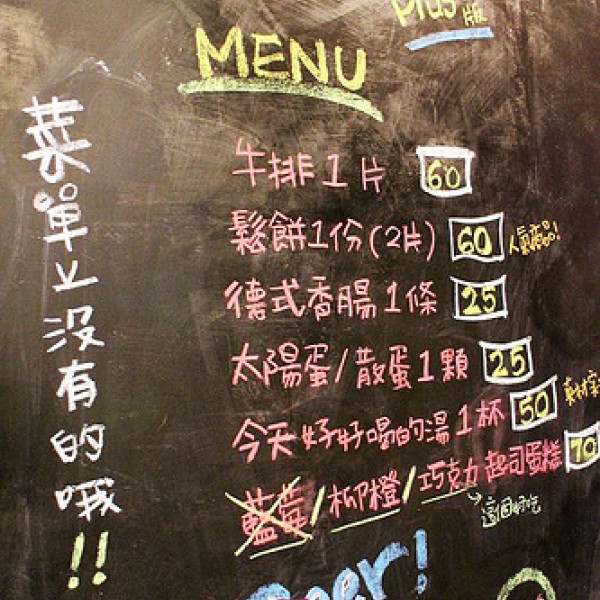 Plus版
MENU
菜單上沒有的哦!!
牛排1片 60
鬆餅1份(2片) 60 人氣商品!
德式香腸1條 25
太陽蛋/散蛋1顆 25
今天好好喝的湯1杯 50
藍莓/柳橙/巧克力起司蛋糕 70
這個好吃
Beer!